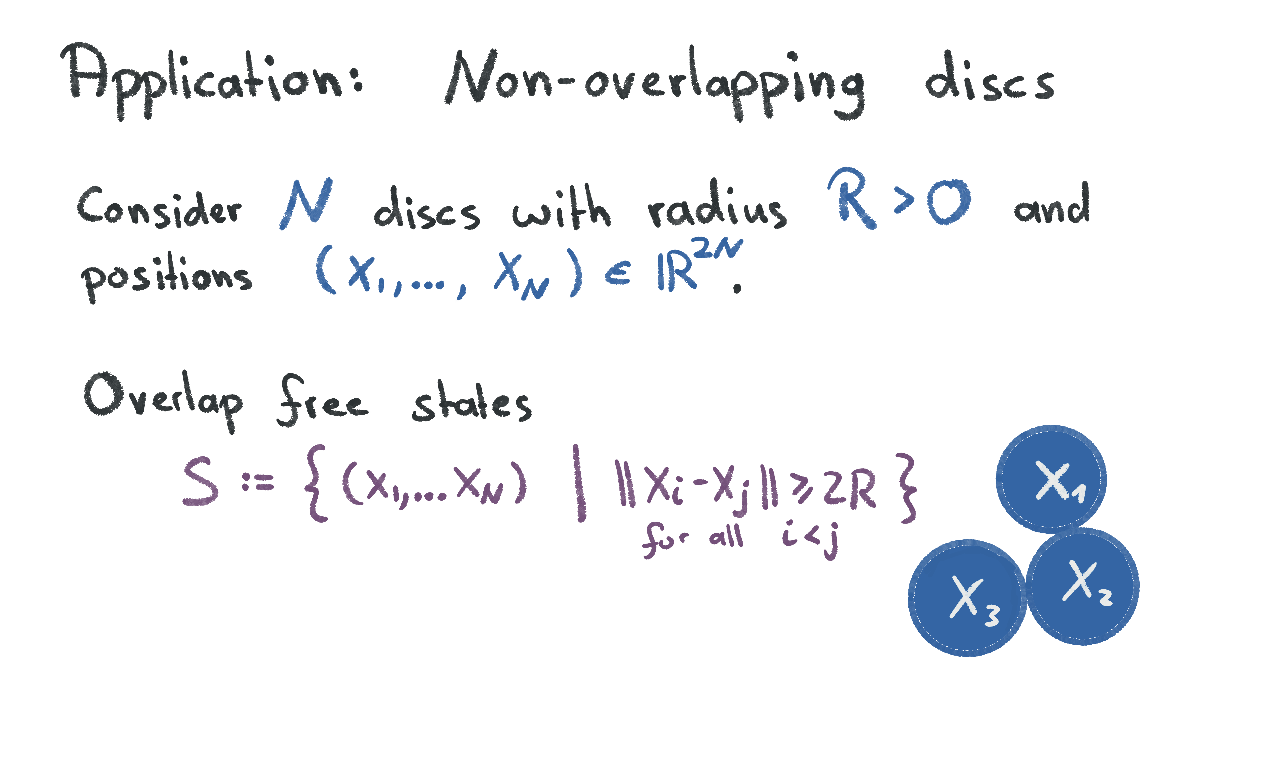 Application: Non-overlapping discs
Consider N discs with radius R > 0 and
positions (X₁,..., X_N) ∈ ℝ²ᴺ.
Overlap free states
S := { (X₁,... X_N) | ‖X_i - X_j‖ ⩾ 2R }
for all i < j
X₁
X₂
X₃